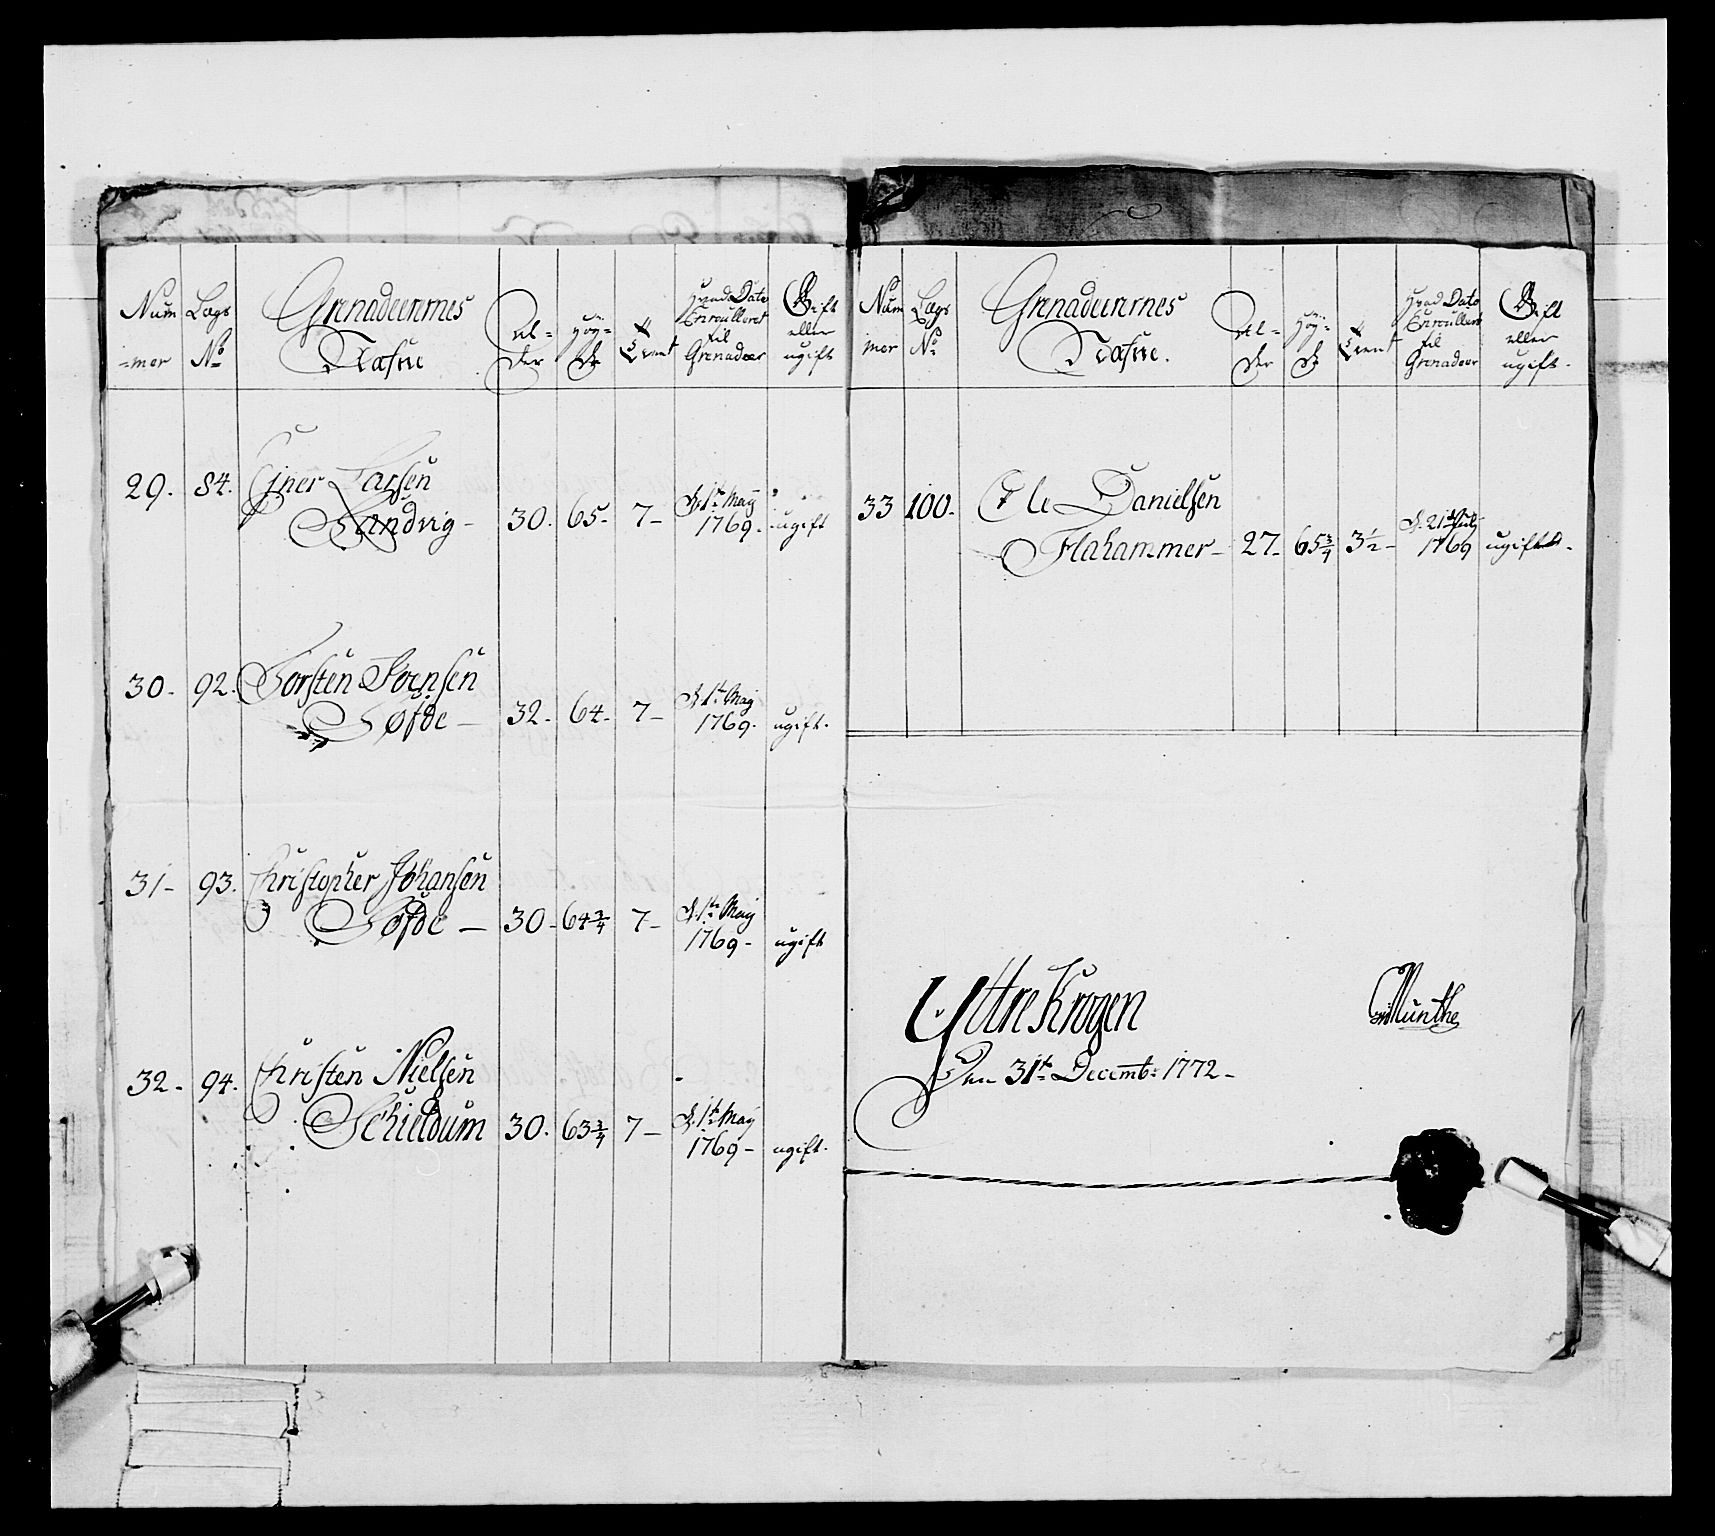 Num -mer
Lægs No
Grenadeerernes Nafne
Al- der
Høy- de
Tient
Hvad Dato Enroulleret til Grenadeer
Gift eller ugift
29. 84. Ejner Larsen
Sandvig - 30. 65. 7- D. 1te May 1769. ugift
30. 92. Torsten Joensen
Tøfde - 32. 64. 7- D. 1te May 1769. ugift.
31- 93. Christopher Johansen
Tøfde - 30. 64 3/4 7- D. 1te May 1769- ugift
32. 94. Christen Nielsen
Schieldum 30. 63 3/4 7- D. 1te May 1769- ugift.
Num mer
Lægs No
Grenadeerernes Nafne.
Al- der
Høy- de
Tient
Hvad Dato Enroulleret til Grenadeer
Gift eller ugift.
33 100. Ole Danielsen
Flahammer- 27- 65 3/4 3 1/2- D. 21de July 1769 ugift.
Yttre Krogen
Den 31te Decembr: 1772-
Munthe